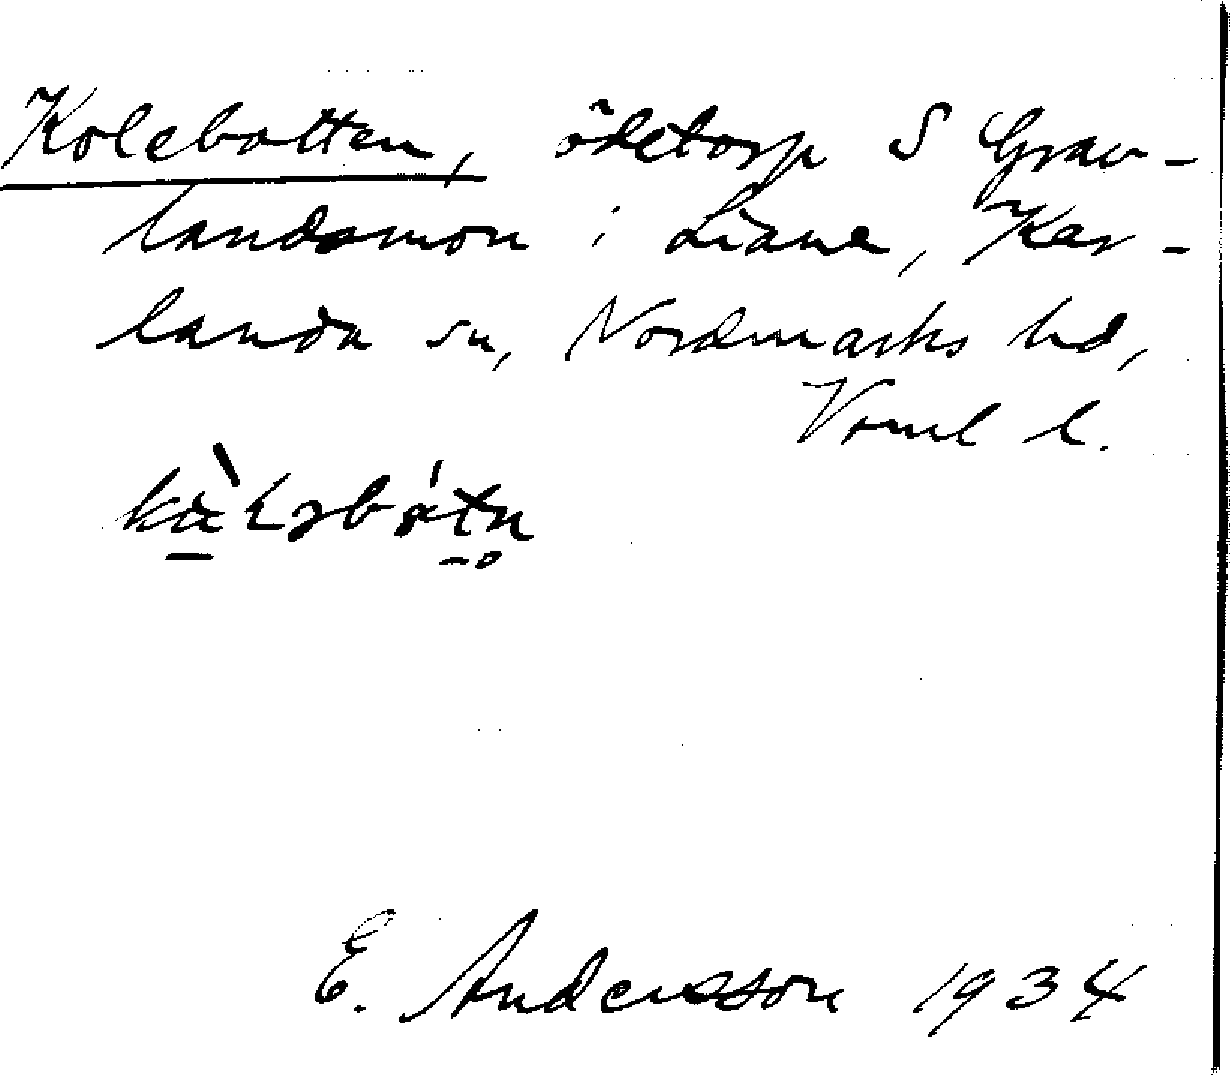 Kolebotten, ödetorp S Grav-
landsmon i Liane, Kar-
landa sn, Nordmarks hd,
Vrml l.
E. Andersson 1934